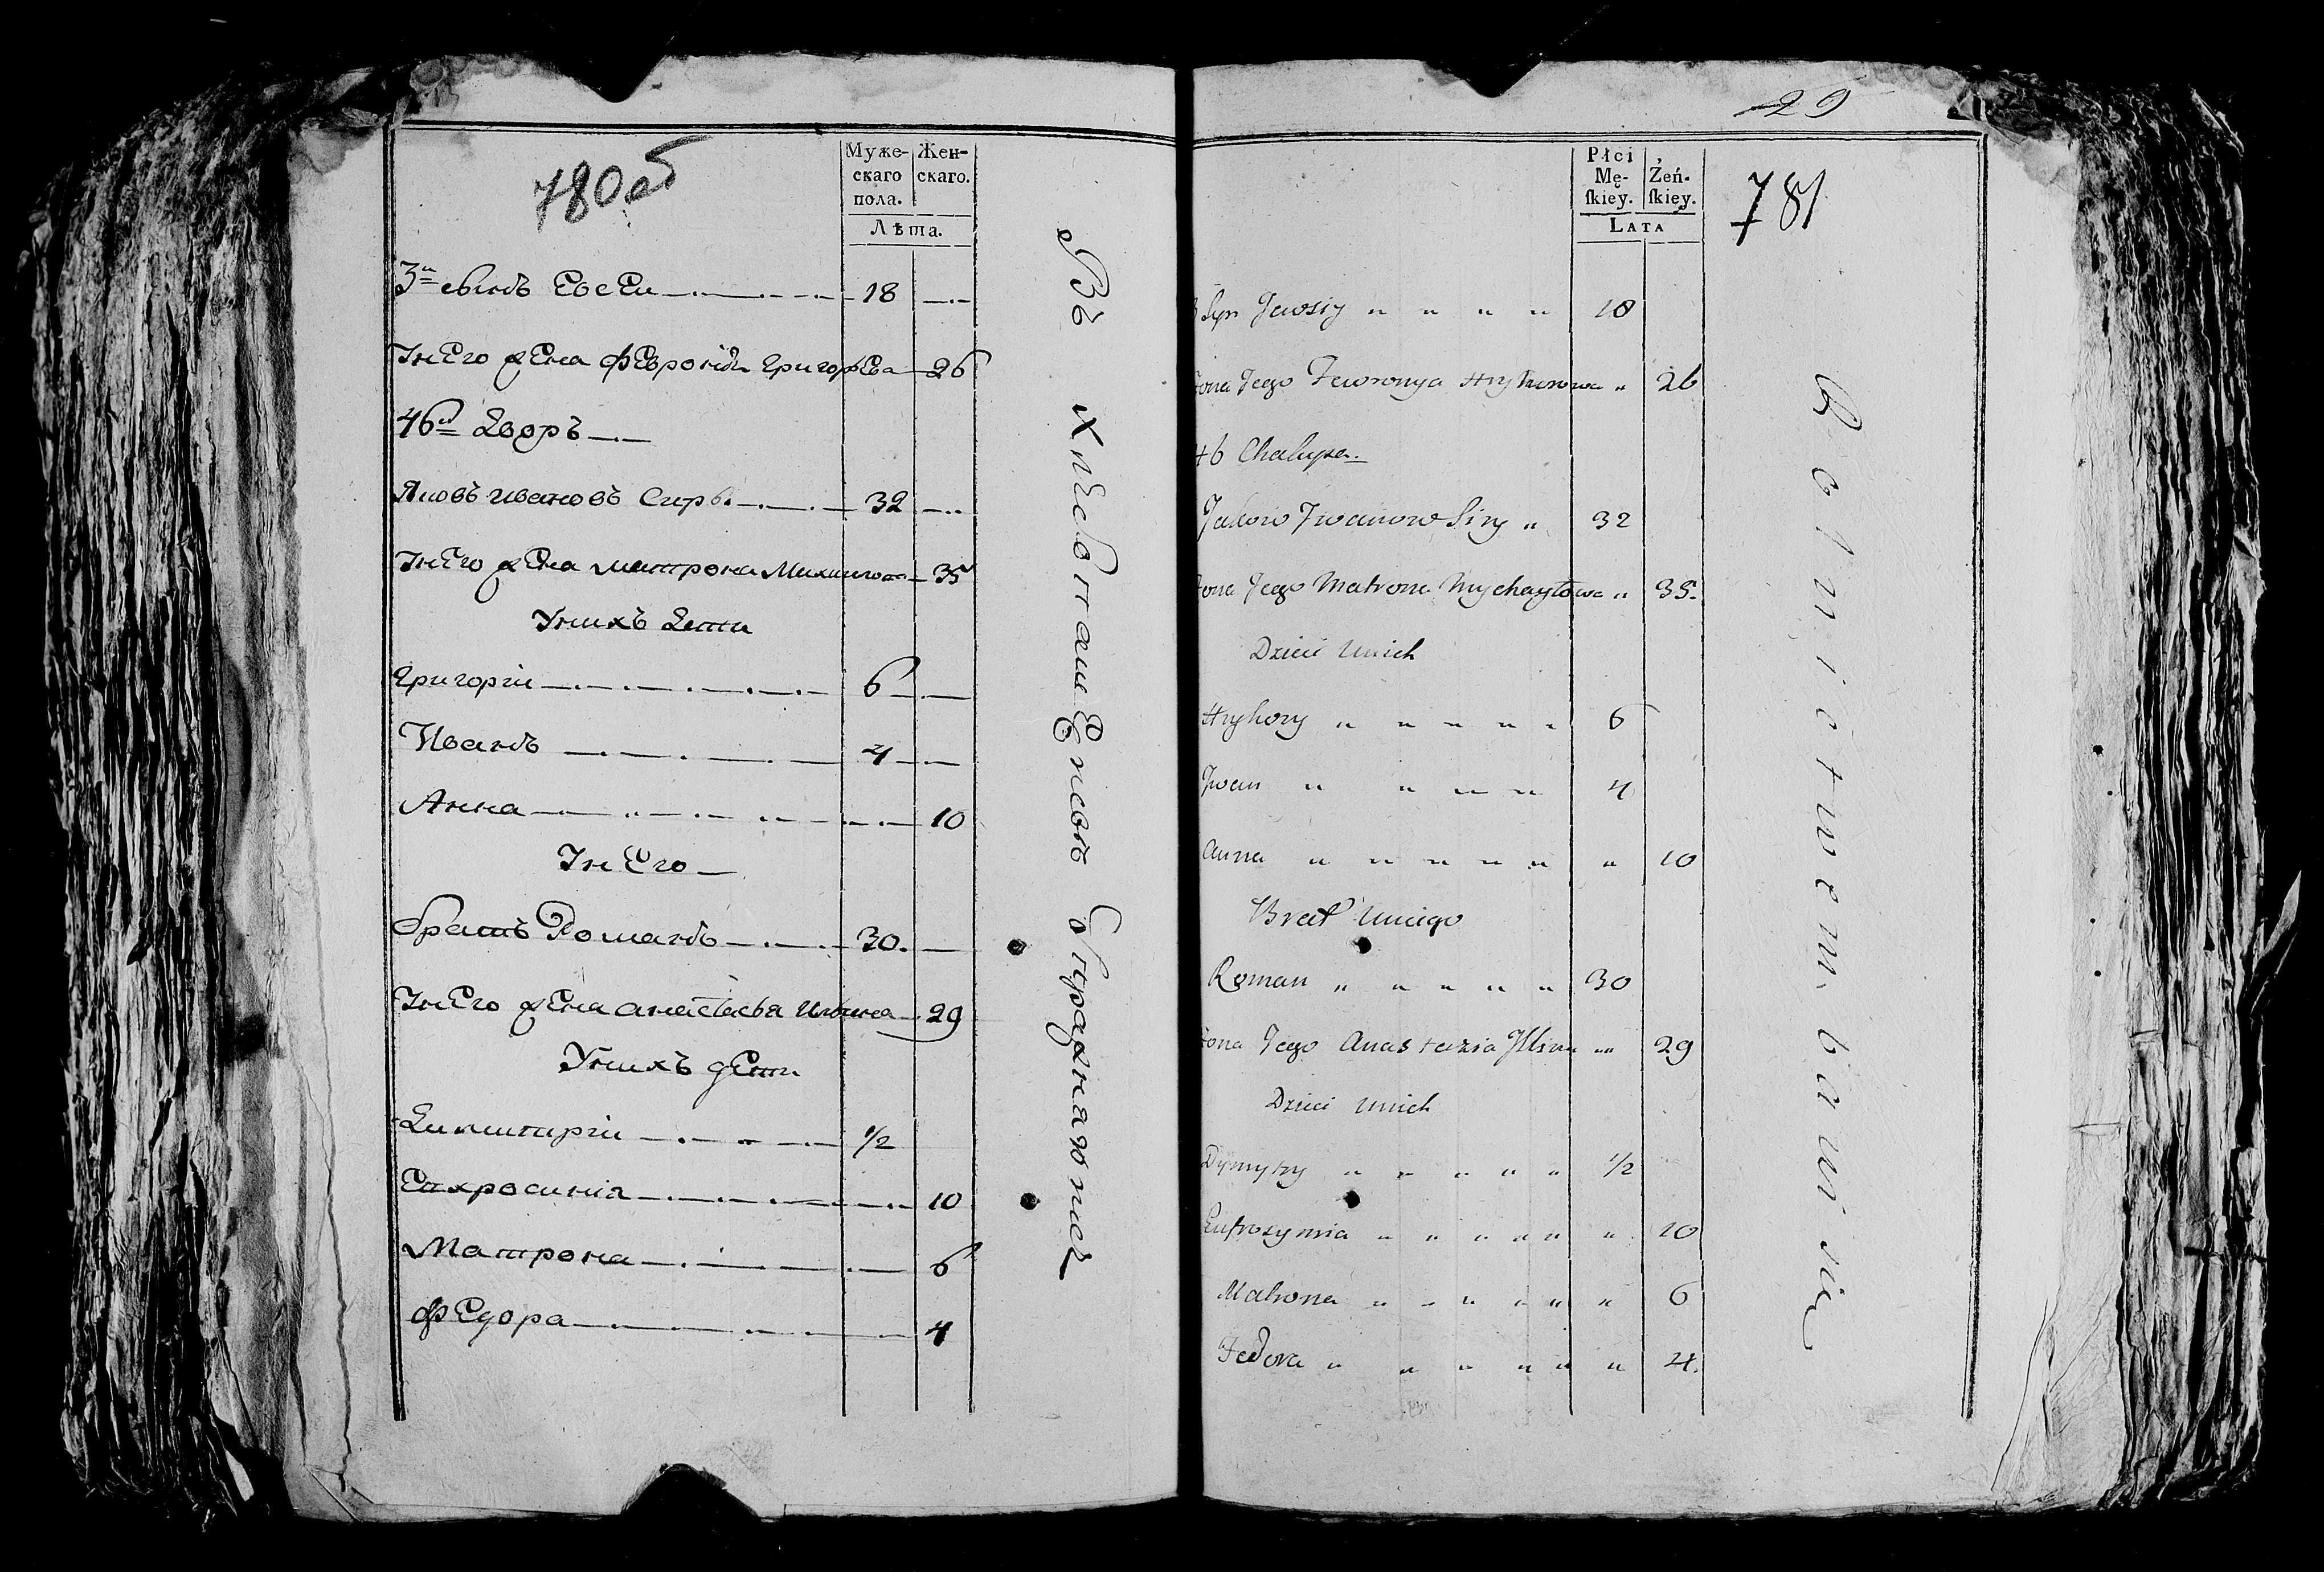 780об
Муже-
скаго
пола.
Жен-
скаго.
Лѣта.
3й сынъ Евсеи 18
Інего жена Февронія Григорьева 26
46й Дворъ
Яковъ Ивановъ Сиры 32
Інего жена Матрона Михаилова 35
Унихъ дети
Григоріи 6
Иванъ 4
Анна 10
Інего
братъ Романъ 30.
Інего жена Анастасья Ильина 29
Унихъ дети
Димитріи 1/2
Евхросиніа 10
Матрона 6
Федора 4
Въ Хлебопашеневъ Упражняюпией
29
781
Płci
Mę-
ſkiey.
Żeń-
ſkiey.
LATA
3 Syn Jewsiy 18
Żona Jego Fewronya Hryhorowa 26
46 Chałupa.
Jakow Iwanow Siry 32
Żona Jego Matrona Mychayłowa 35.
Dzieci Unich
Hryhory 6
Iwan 4
Anna 10
Brat Uniego
Roman 30
Żona Jego Anastazia Illina 29
Dzieci Unich
Dymytry 1/2
Eufrozynia 10
Matrona 6
Fedora 4.
Rolnictwem bawi się